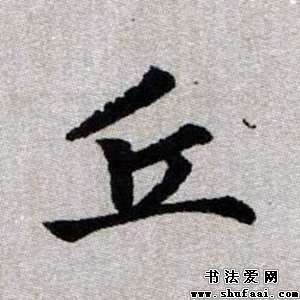 丘
书法爱网
www.shufaai.com